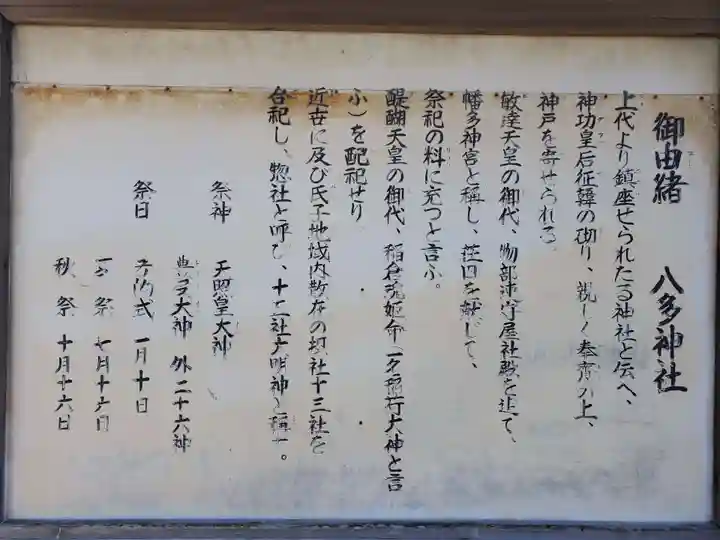 御由緒 八多神社
上代より鎮座せられたる神社と伝へ、
神功皇后征韓の砌り、親しく奉斎の上、
神戸を寄せられる
敏達天皇の御代、物部守屋社殿を造て、
幡多神宮と称し、荘田を献じて、
祭祀の料に充つと言ふ。
醍醐天皇の御代、稲倉魂姫命(一名稲荷大神と言
ふ)を配祀せり
近古に及び氏子地域内散在の坝社十三社を
合祀し、惣社と呼び、十二社大明神と称せ。
祭神 天照皇大神
大神 外二十六神
祭日 弓的式 一月十日
祭 七月十六日
秋祭 十月十六日